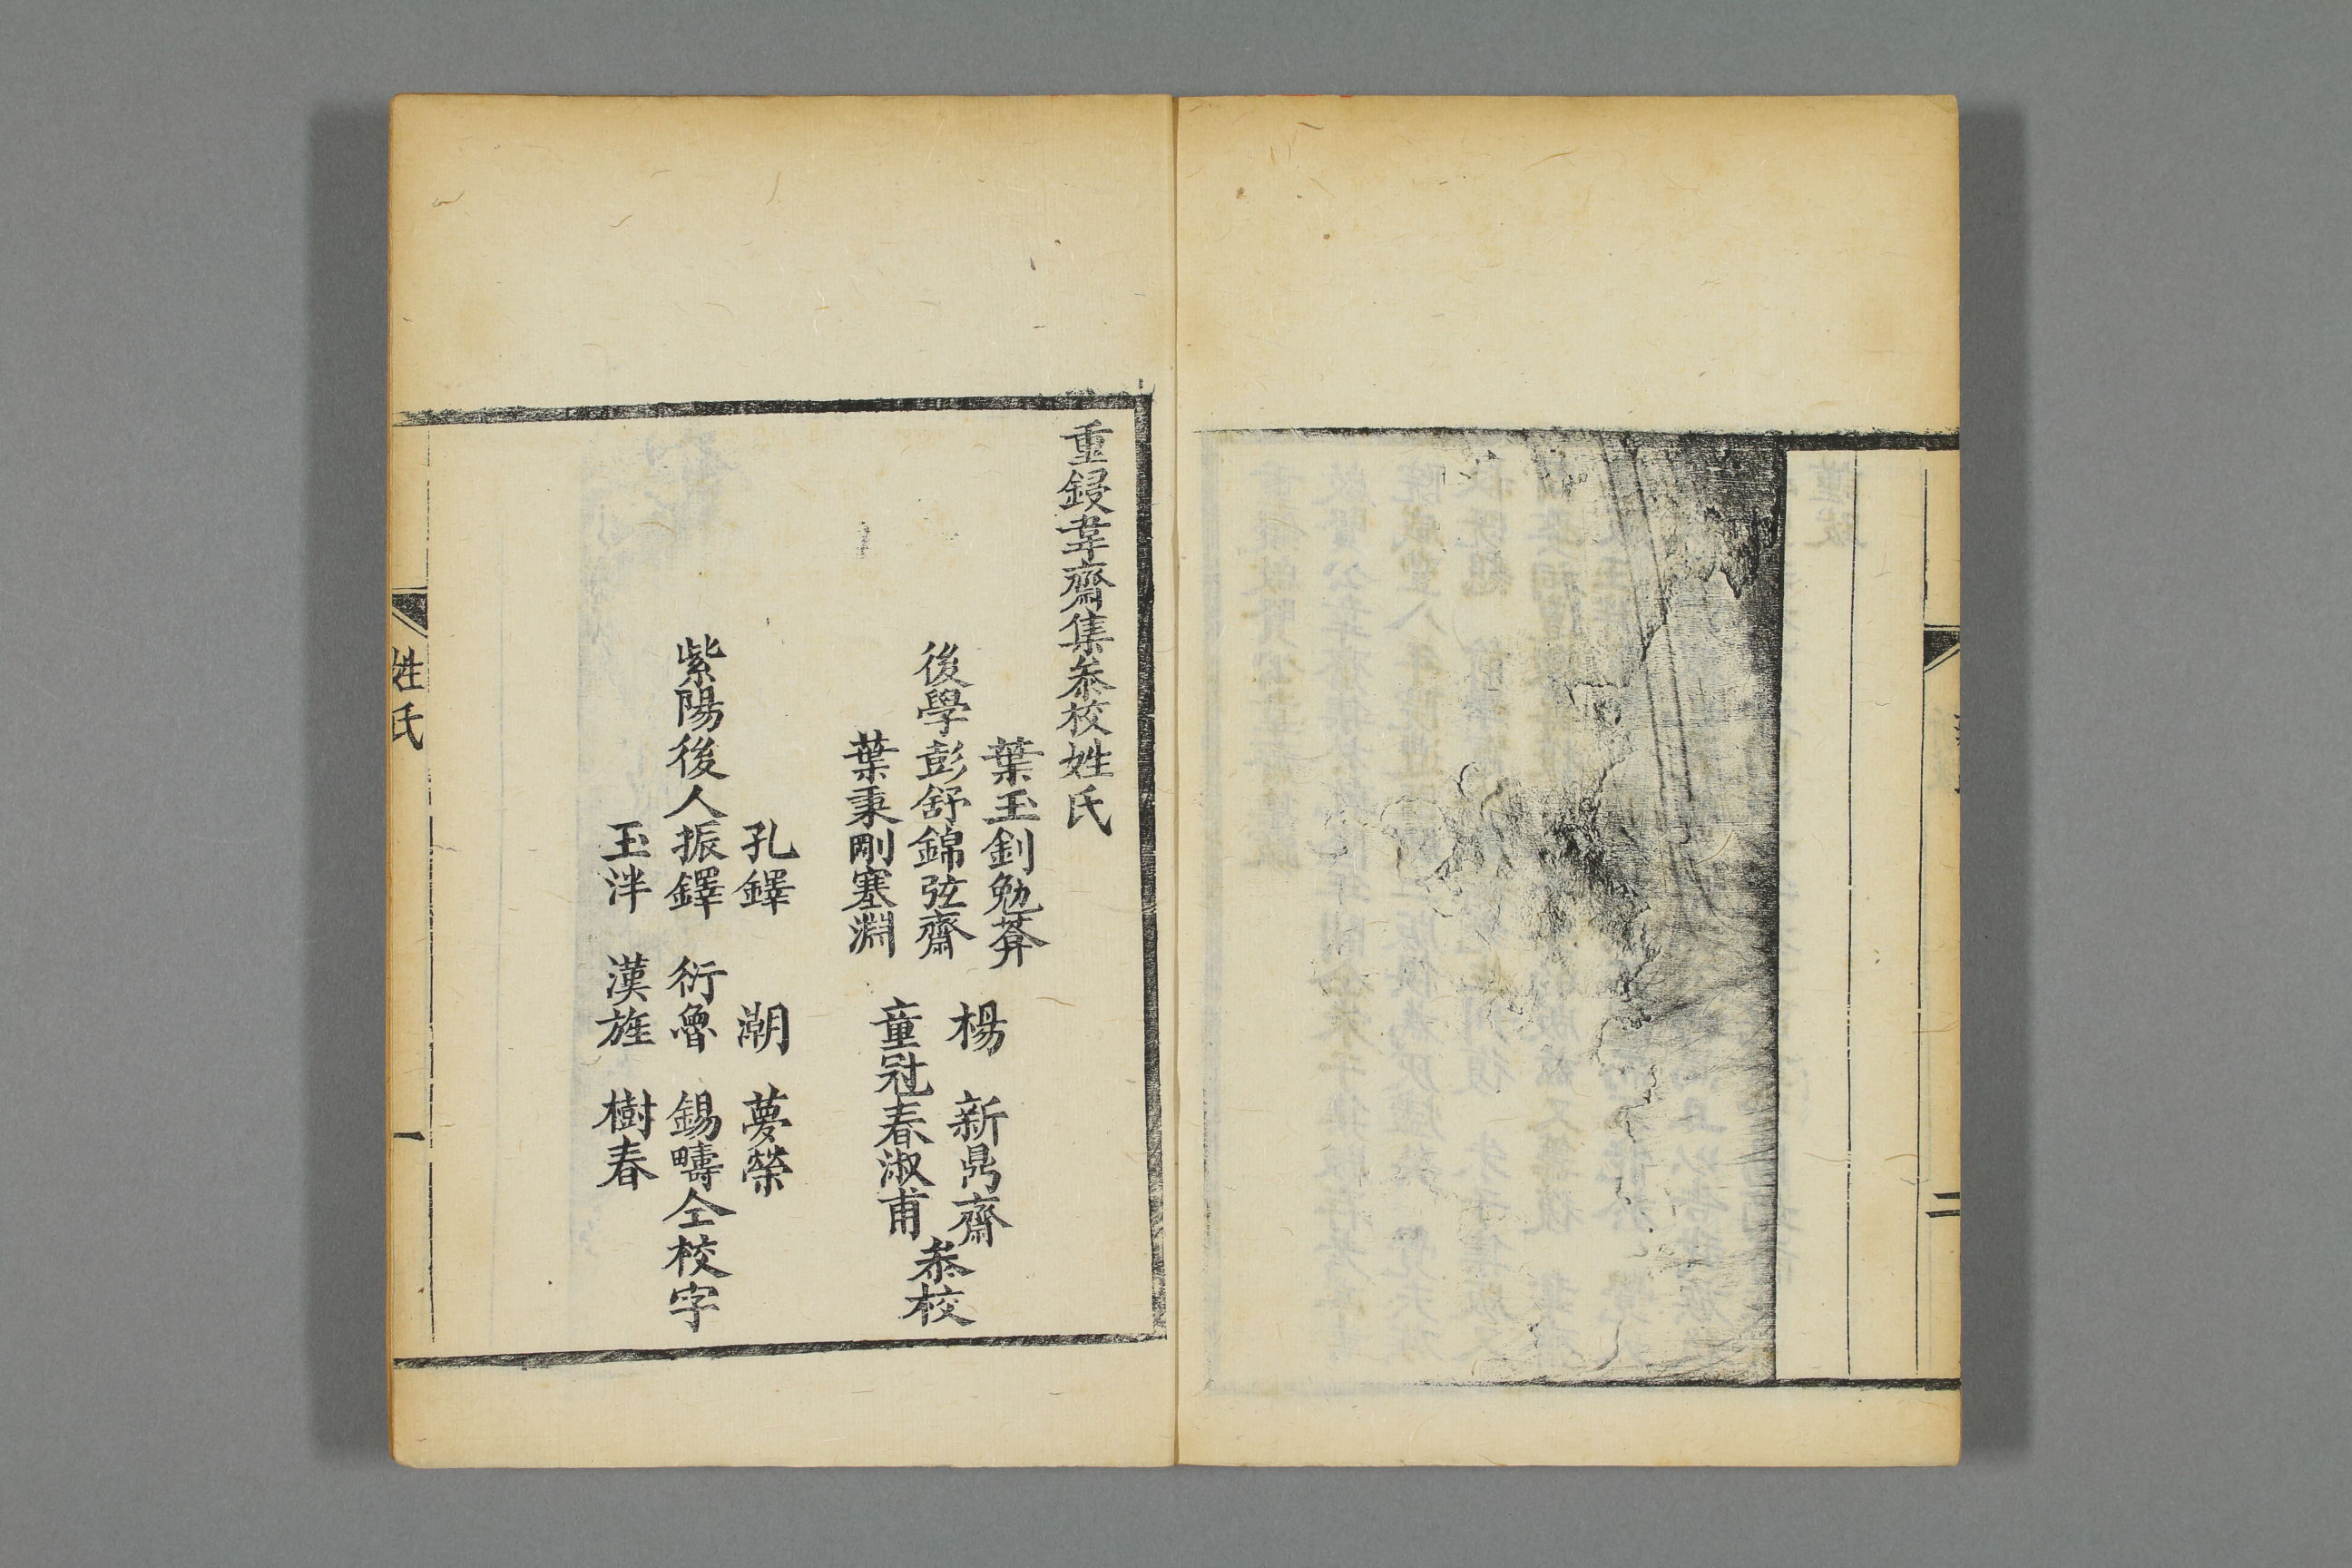 二
重鋟韋齋集叅校姓氏
葉玉釗勉莽
後學彭舒錦弦齋
葉秉剛塞淵
楊 新鼎齋
童冠春淑甫
叅校
孔鐸 潮 夢榮
紫陽後人振鐸 衍魯 錫疇仝校字
玉泮 漢旌 樹春
姓氏
一